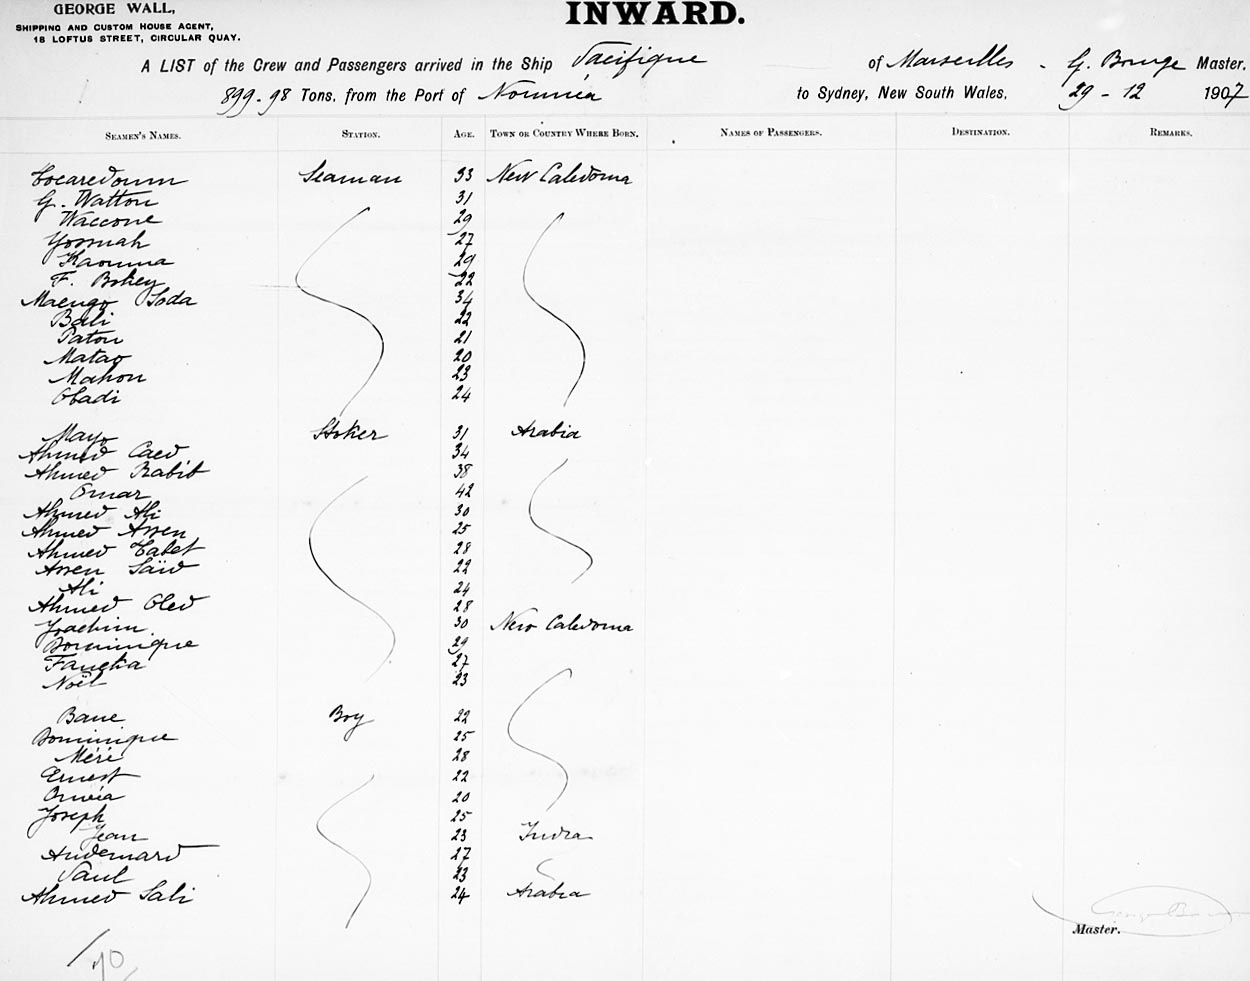 GEORGE WALL,
SHIPPING AND CUSTOM HOUSE AGENT,
18 LOFTUS STREET, CIRCULAR QUAY.
INWARD.
A LIST of the Crew and Passengers arrived in the Ship Pacifique of Marseilles - G. Bourge Master,
899-98 Tons, from the Port of Nouméa to Sydney, New South Wales, 29-12 1907
SEAMEN'S NAMES. STATION. AGE. TOWN OR COUNTRY WHERE BORN. NAMES OF PASSENGERS. DESTINATION. REMARKS.
Seaman 33 New Caledonia
G. Watton 31
Waccone 29
27
Kaouma 29
F. Bokey 22
Maengo Soda 34
Bali 22
Paton 21
Matao 20
Mahon 23
Obadi 24
Mayo Stoker 31 Arabia
Ahmed Caed 34
Ahmed Rabit 38
Omar 42
Ahmed Ali 30
Ahmed Assen 25
Ahmed Tabet 28
Assen Saïd 22
Ali 24
Ahmed Oled 28
Joachim 30 New Caledonia
Dominique 29
27
Noël 23
Baue Boy 22
Dominique 25
Méré 28
Ernest 22
20
Joseph 25
Jean 23 India
Andemard 27
Paul 23
Ahmed Sali 24 Arabia
Master.